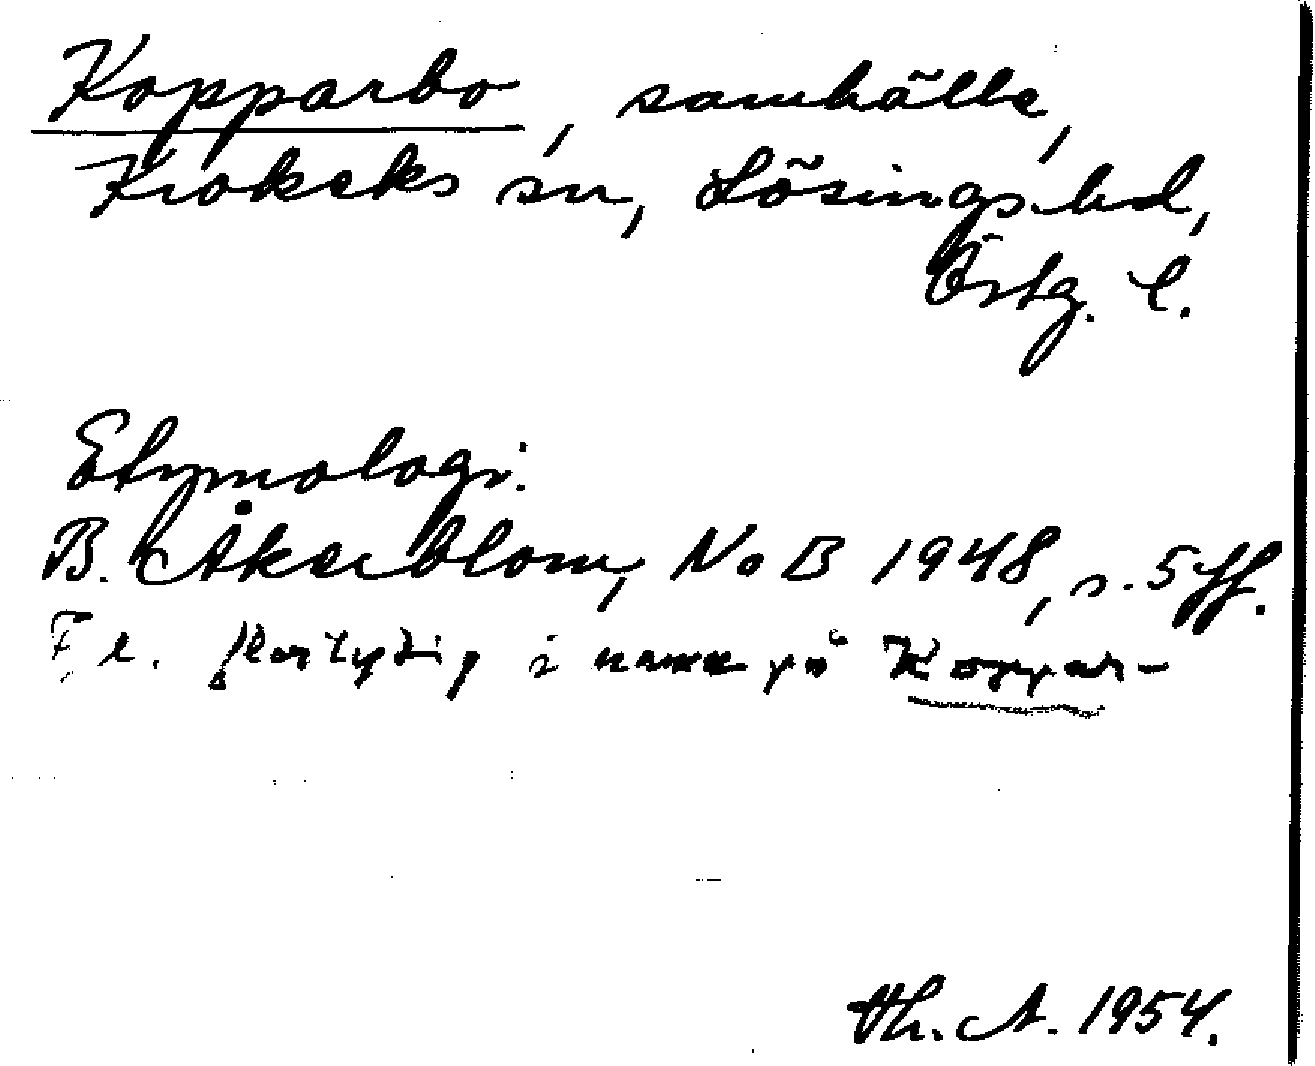 Kopparbo, samhälle,
Krokeks sn, Lösings hd,
Östg. l.
Etymologi:
B. Åkerblom, NoB 1948, s. 5 ff.
F l. flertydig i namn på Koppar-
Th. A. 1954.